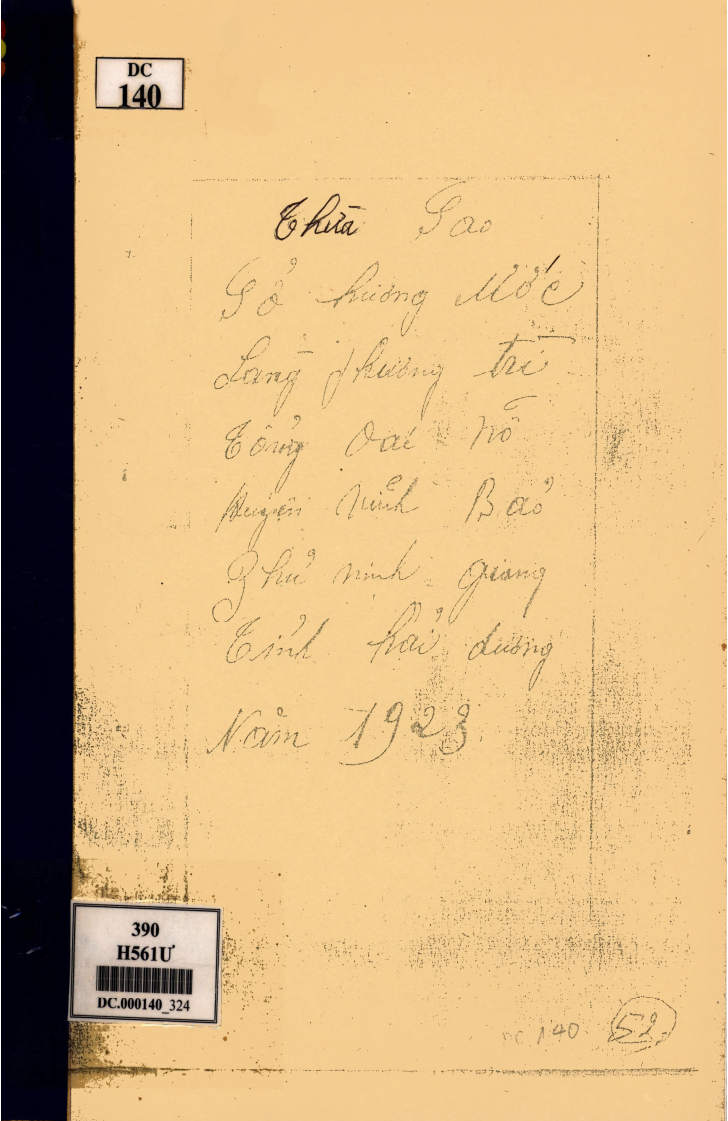 DC
140
Thừa Sao
Sổ hương ước
Làng Phương trì
Tổng Oai nỗ
Huyện Vĩnh Bảo
Phủ ninh giang
Tỉnh hải dương
Năm 1923.
390
H561Ư
DC.000140_324
DC 140 52